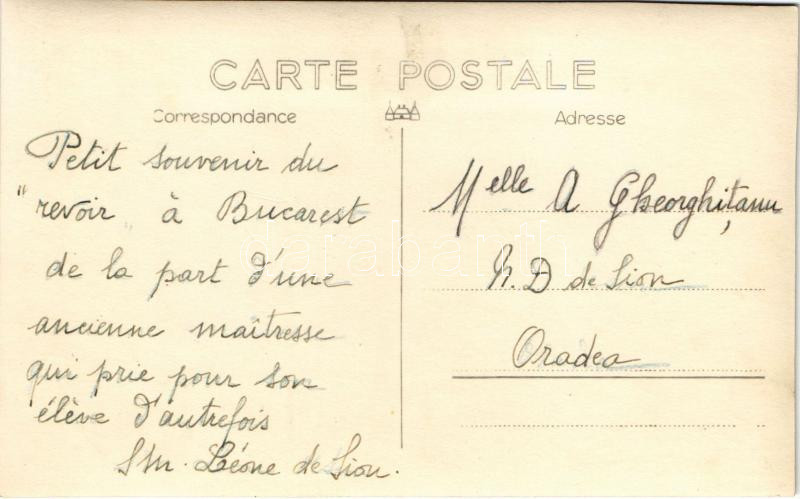 CARTE POSTALE
Correspondance
Petit souvenir du
"revoir" à Bucarest
de la part d'une
ancienne maîtresse
qui prie pour son
élève d'autrefois
Sr M. Léone de Sion.
Adresse
Melle A Gheorghițanu
N. D de Sion
Oradea
darabanth